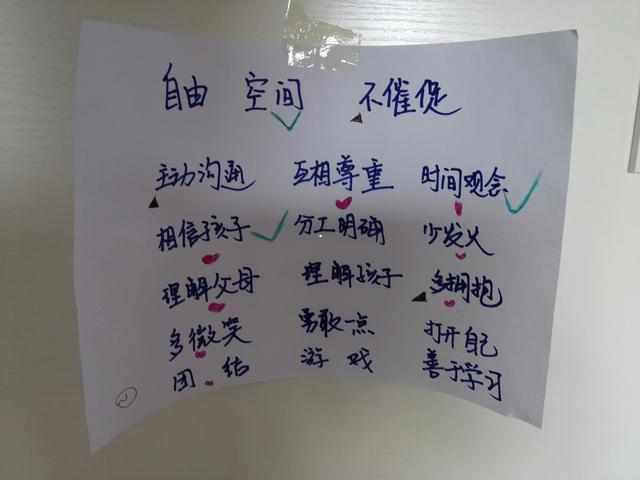 自由 空间 不催促
主动沟通 互相尊重 时间观念
相信孩子 分工明确 少发火
理解父母 理解孩子 多拥抱
多微笑 勇敢一点 打开自己
团结 游戏 善于学习